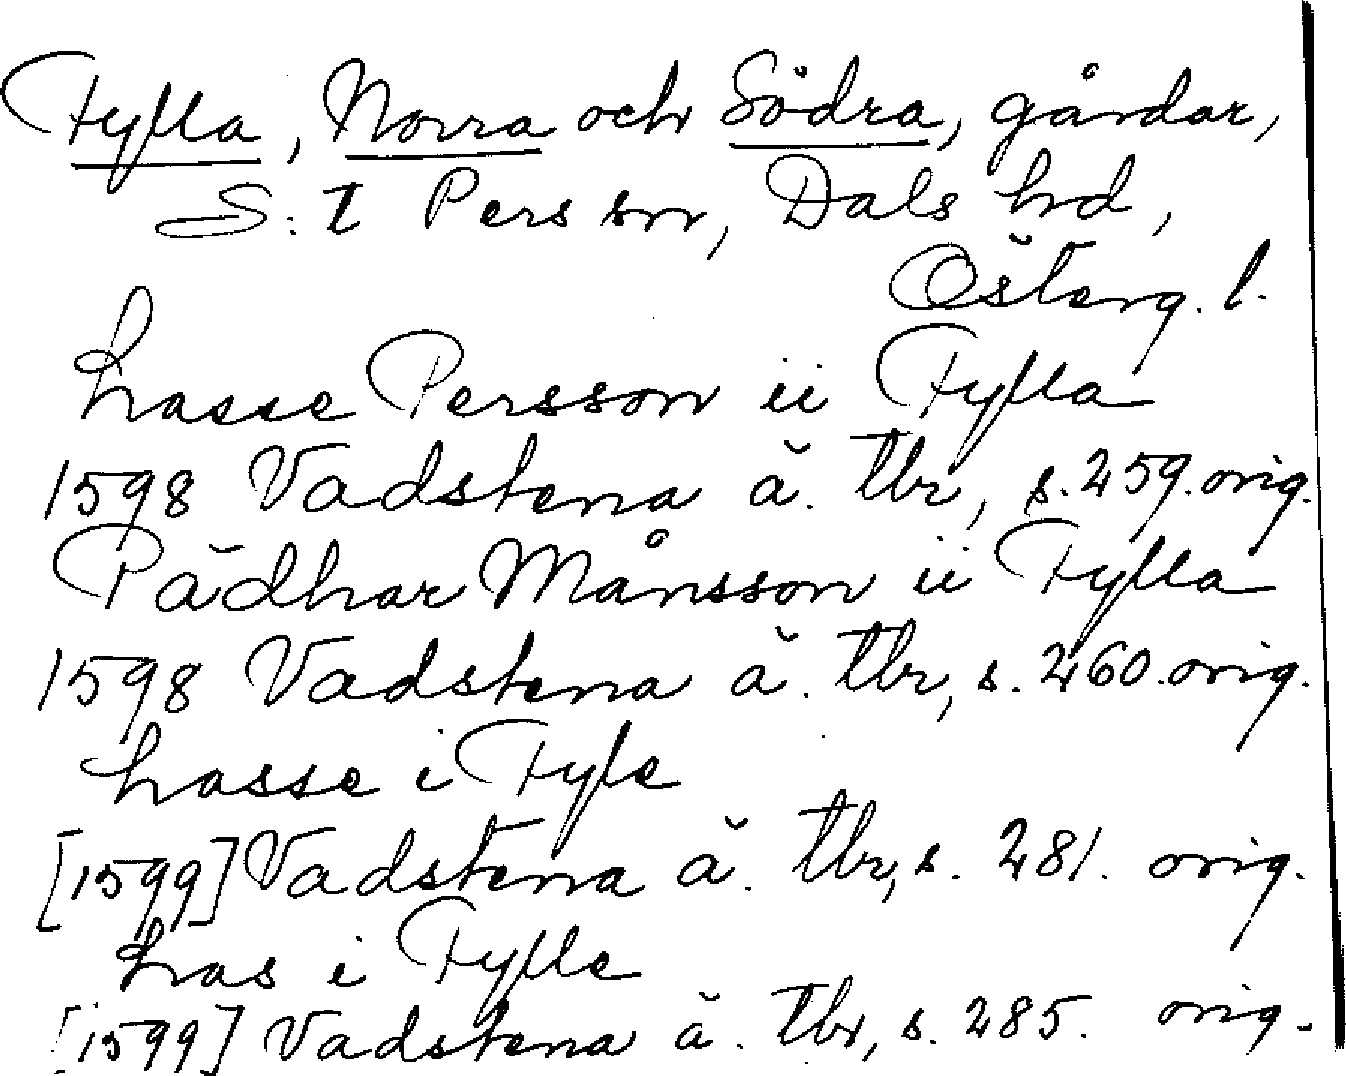 Fylla, Norra och Södra, gårdar,
S:t Pers sn, Dals hd,
Österg. l.
Lasse Persson ii Fylla
1598 Vadstena ä. tbr, s. 259. orig.
Pädhar Månsson ii Fylla
1598 Vadstena ä. tbr, s. 260. orig.
Lasse i Fyle
[1599] Vadstena ä. tbr, s. 281. orig.
Las i Fylle
[1599] Vadstena ä. tbr, s. 285. orig.